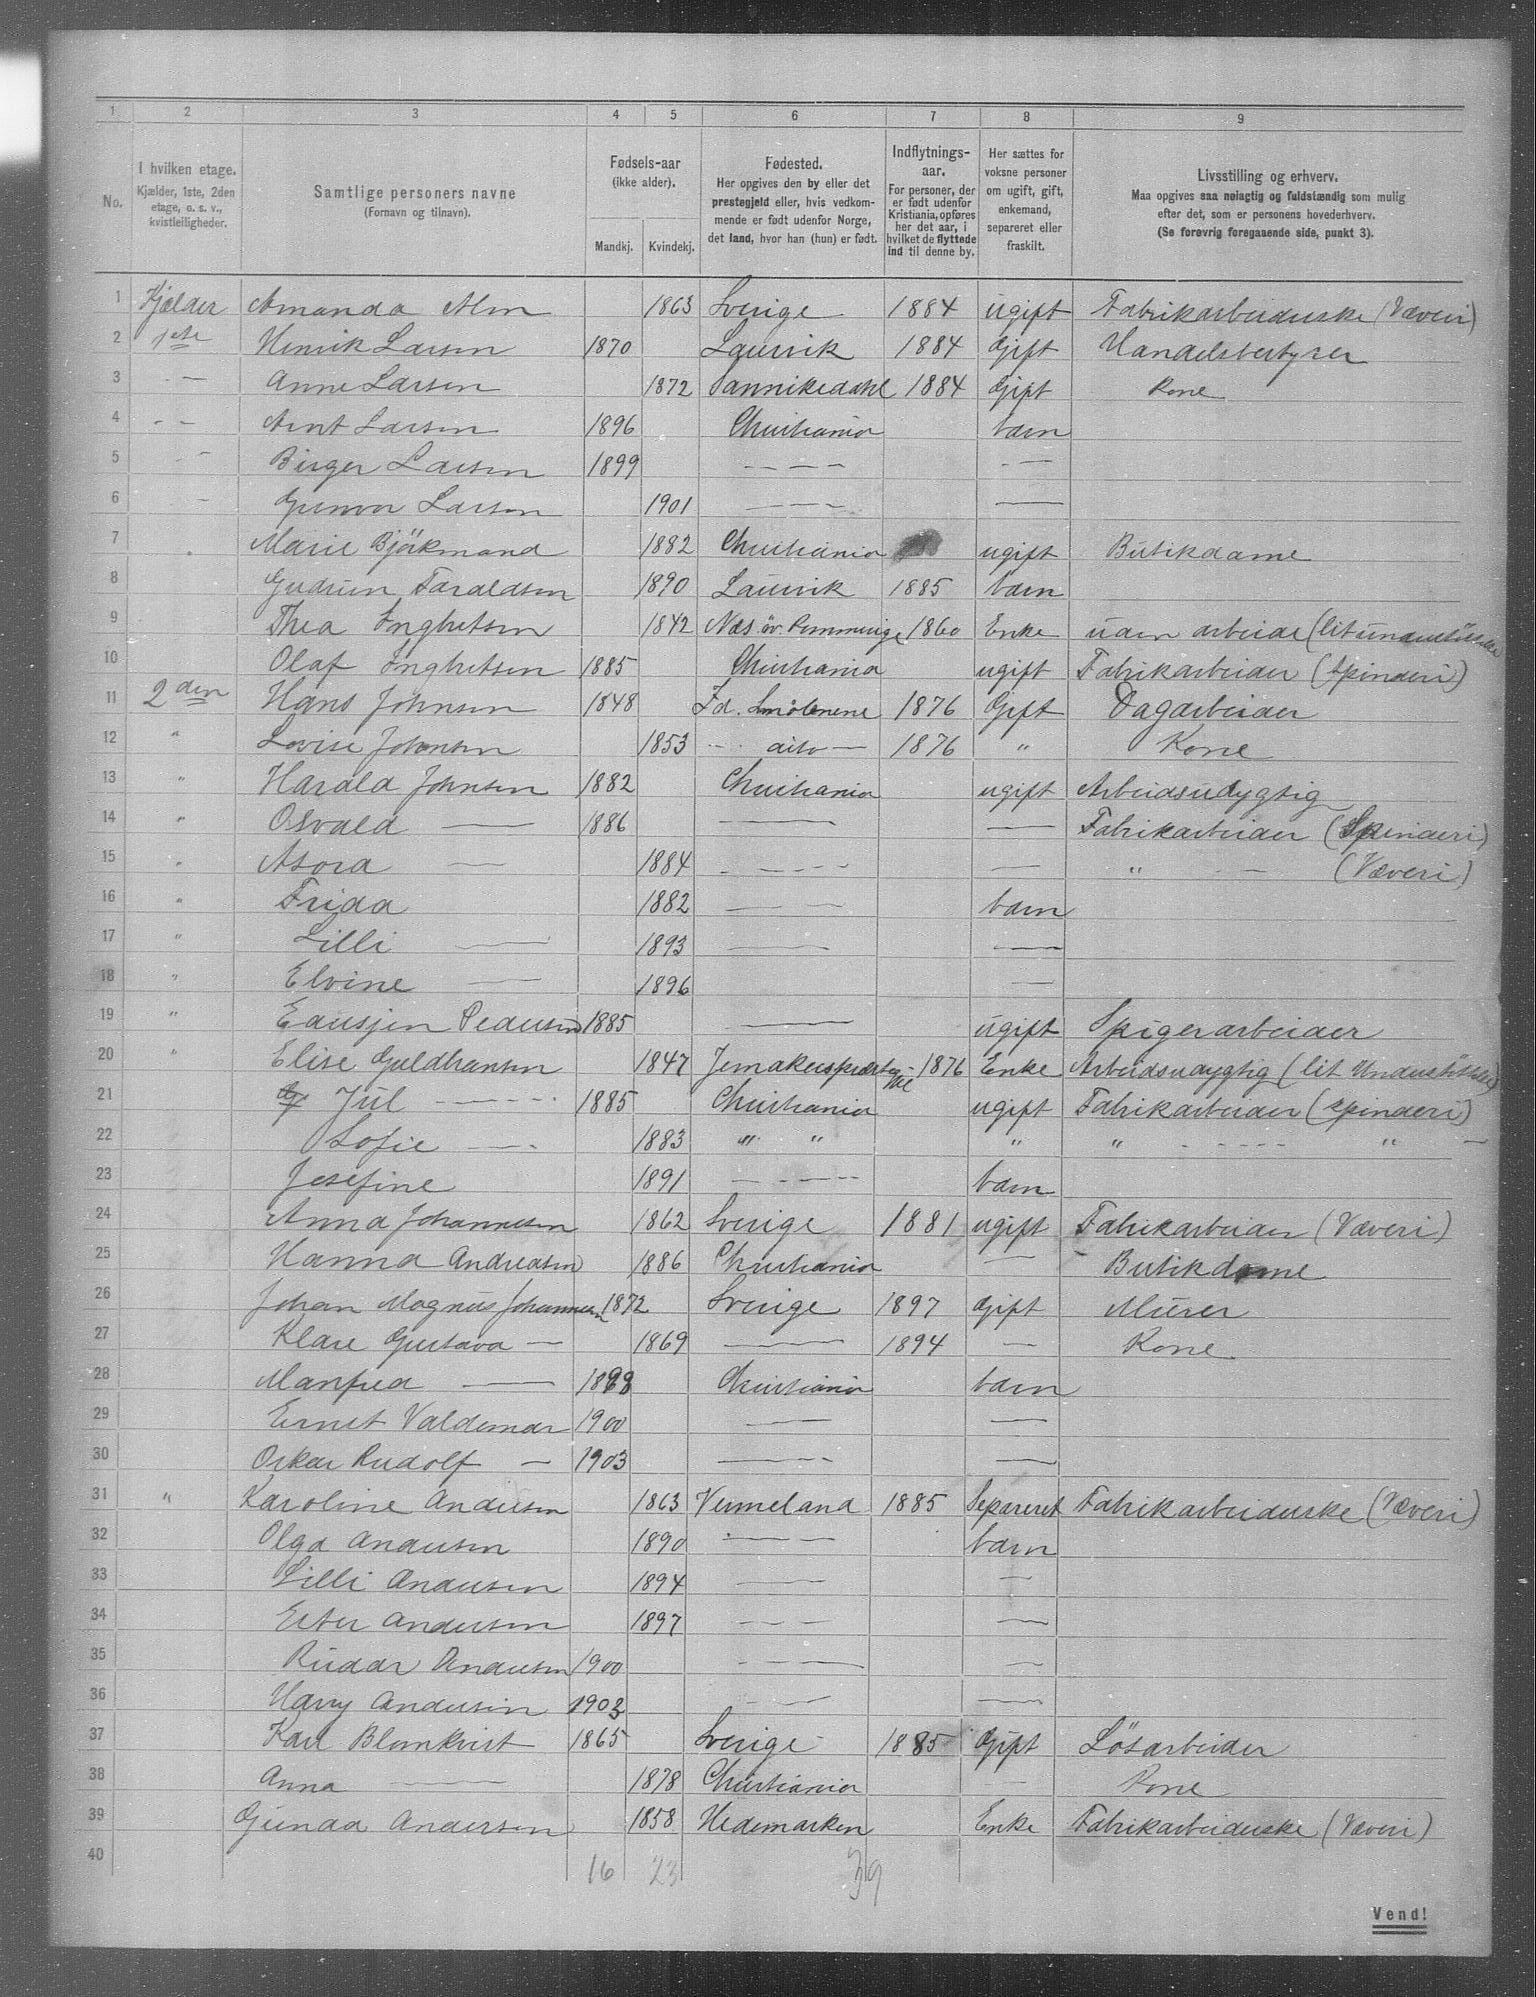 1 2 3 4 5 6 7 8 9
No.
I hvilken etage.
Kjælder, 1ste, 2den
etage, o. s. v.,
kvistleiligheder.
Samtlige personers navne
(Fornavn og tilnavn).
Fødsels-aar
(ikke alder).
Mandkj. Kvindekj.
Fødested.
Her opgives den by eller det
prestegjeld eller, hvis vedkom-
mende er født udenfor Norge,
det land, hvor han (hun) er født.
Indflytnings-
aar.
For personer, der
er født udenfor
Kristiania, opføres
her det aar, i
hvilket de flyttede
ind til denne by.
Her sættes for
voksne personer
om ugift, gift,
enkemand,
separeret eller
fraskilt.
Livsstilling og erhverv.
Maa opgives saa nøiagtig og fuldstændig som mulig
efter det, som er personens hovederhverv.
(Se forøvrig foregaaende side, punkt 3).
1 Kjælder Amanda Alm 1863 Sverige 1884 ugift Fabrikarbeiderske (Væveri)
2 1ste Henrik Larsen 1870 Laurvik 1884 Gift Handelsbestyrer
3 - — Anne Larsen 1872 Sannikedahl 1884 Gift Kone
4 - - Arnt Larsen 1896 Christiania barn
5 - Birger Larsen 1899 - — - — - —
6 - Gunvor Larsen 1901 - — - — —
7 Marie Björkmand 1882 Christiania ugift Butikdame
8 Gudrun Faraldsen 1890 Laurvik 1885 barn
9 Thea Ingbretsen 1842 Næs 1860 Enke uden arbeide
10 Olaf Ingbretsen 1885 Christiania ugift Fabrikarbeider (Spinderi)
11 2den Hans Johnsen 1848 Fd. Smålenene 1876 Gift Dagarbeider
12 " Lovise Johnsen 1853 - dito — 1876 " Kone
13 " Harald Johnsen 1882 Christiania ugift Arbeidsudygtig
14 " Osvald — 1886 — — Fabrikarbeider (Spinderi)
15 " Asora — 1884 - - - - — " - — (Væveri)
16 " Frida 1882 — — — barn
17 " Lilli — 1893 — —
18 " Elvine — 1896 —
19 " Pedersen 1885 — ugift Spigerarbeider
20 " Elise Guldbransen 1847 1876 Enke Arbeidsudygtig
21 Jul - - - - 1885 Christiania ugift Fabrikarbeider (spinderi)
22 Sofie — - 1883 " " " " - - - - - " —
23 Josefine 1891 — - — - — barn
24 Anna Johannesen 1862 Sverige 1881 ugift Fabrikarbeider (Væveri)
25 Hanna Andreasen 1886 Christiania — Butikdame
26 Johan Magnus Johannesen 1872 Sverige 1897 Gift Murer
27 Klare Gustava — 1869 — 1894 — Kone
28 Manfred — Christiania barn
29 Ernst Valdemar 1900 — —
30 Oskar Rudolf — 1903 — —
31 " Karoline Andersen 1863 Vermeland 1885 Separeret Fabrikarbeiderske (Væveri)
32 Olga Andersen 1890 — barn
33 Lilli Andersen 1894 — —
34 Ester Andersen 1897 - — - —
35 Andersen 1900 - - — —
36 Harry Andersen 1903 - — —
37 Karl Blomkvist 1865 Sverige 1885 Gift Lösarbeider
38 Anna — 1878 Christiania — Kone
39 Gunda Andersen 1858 Hedemarken Enke Fabrikarbeiderske (Væveri)
40
16 23 39
Vend!